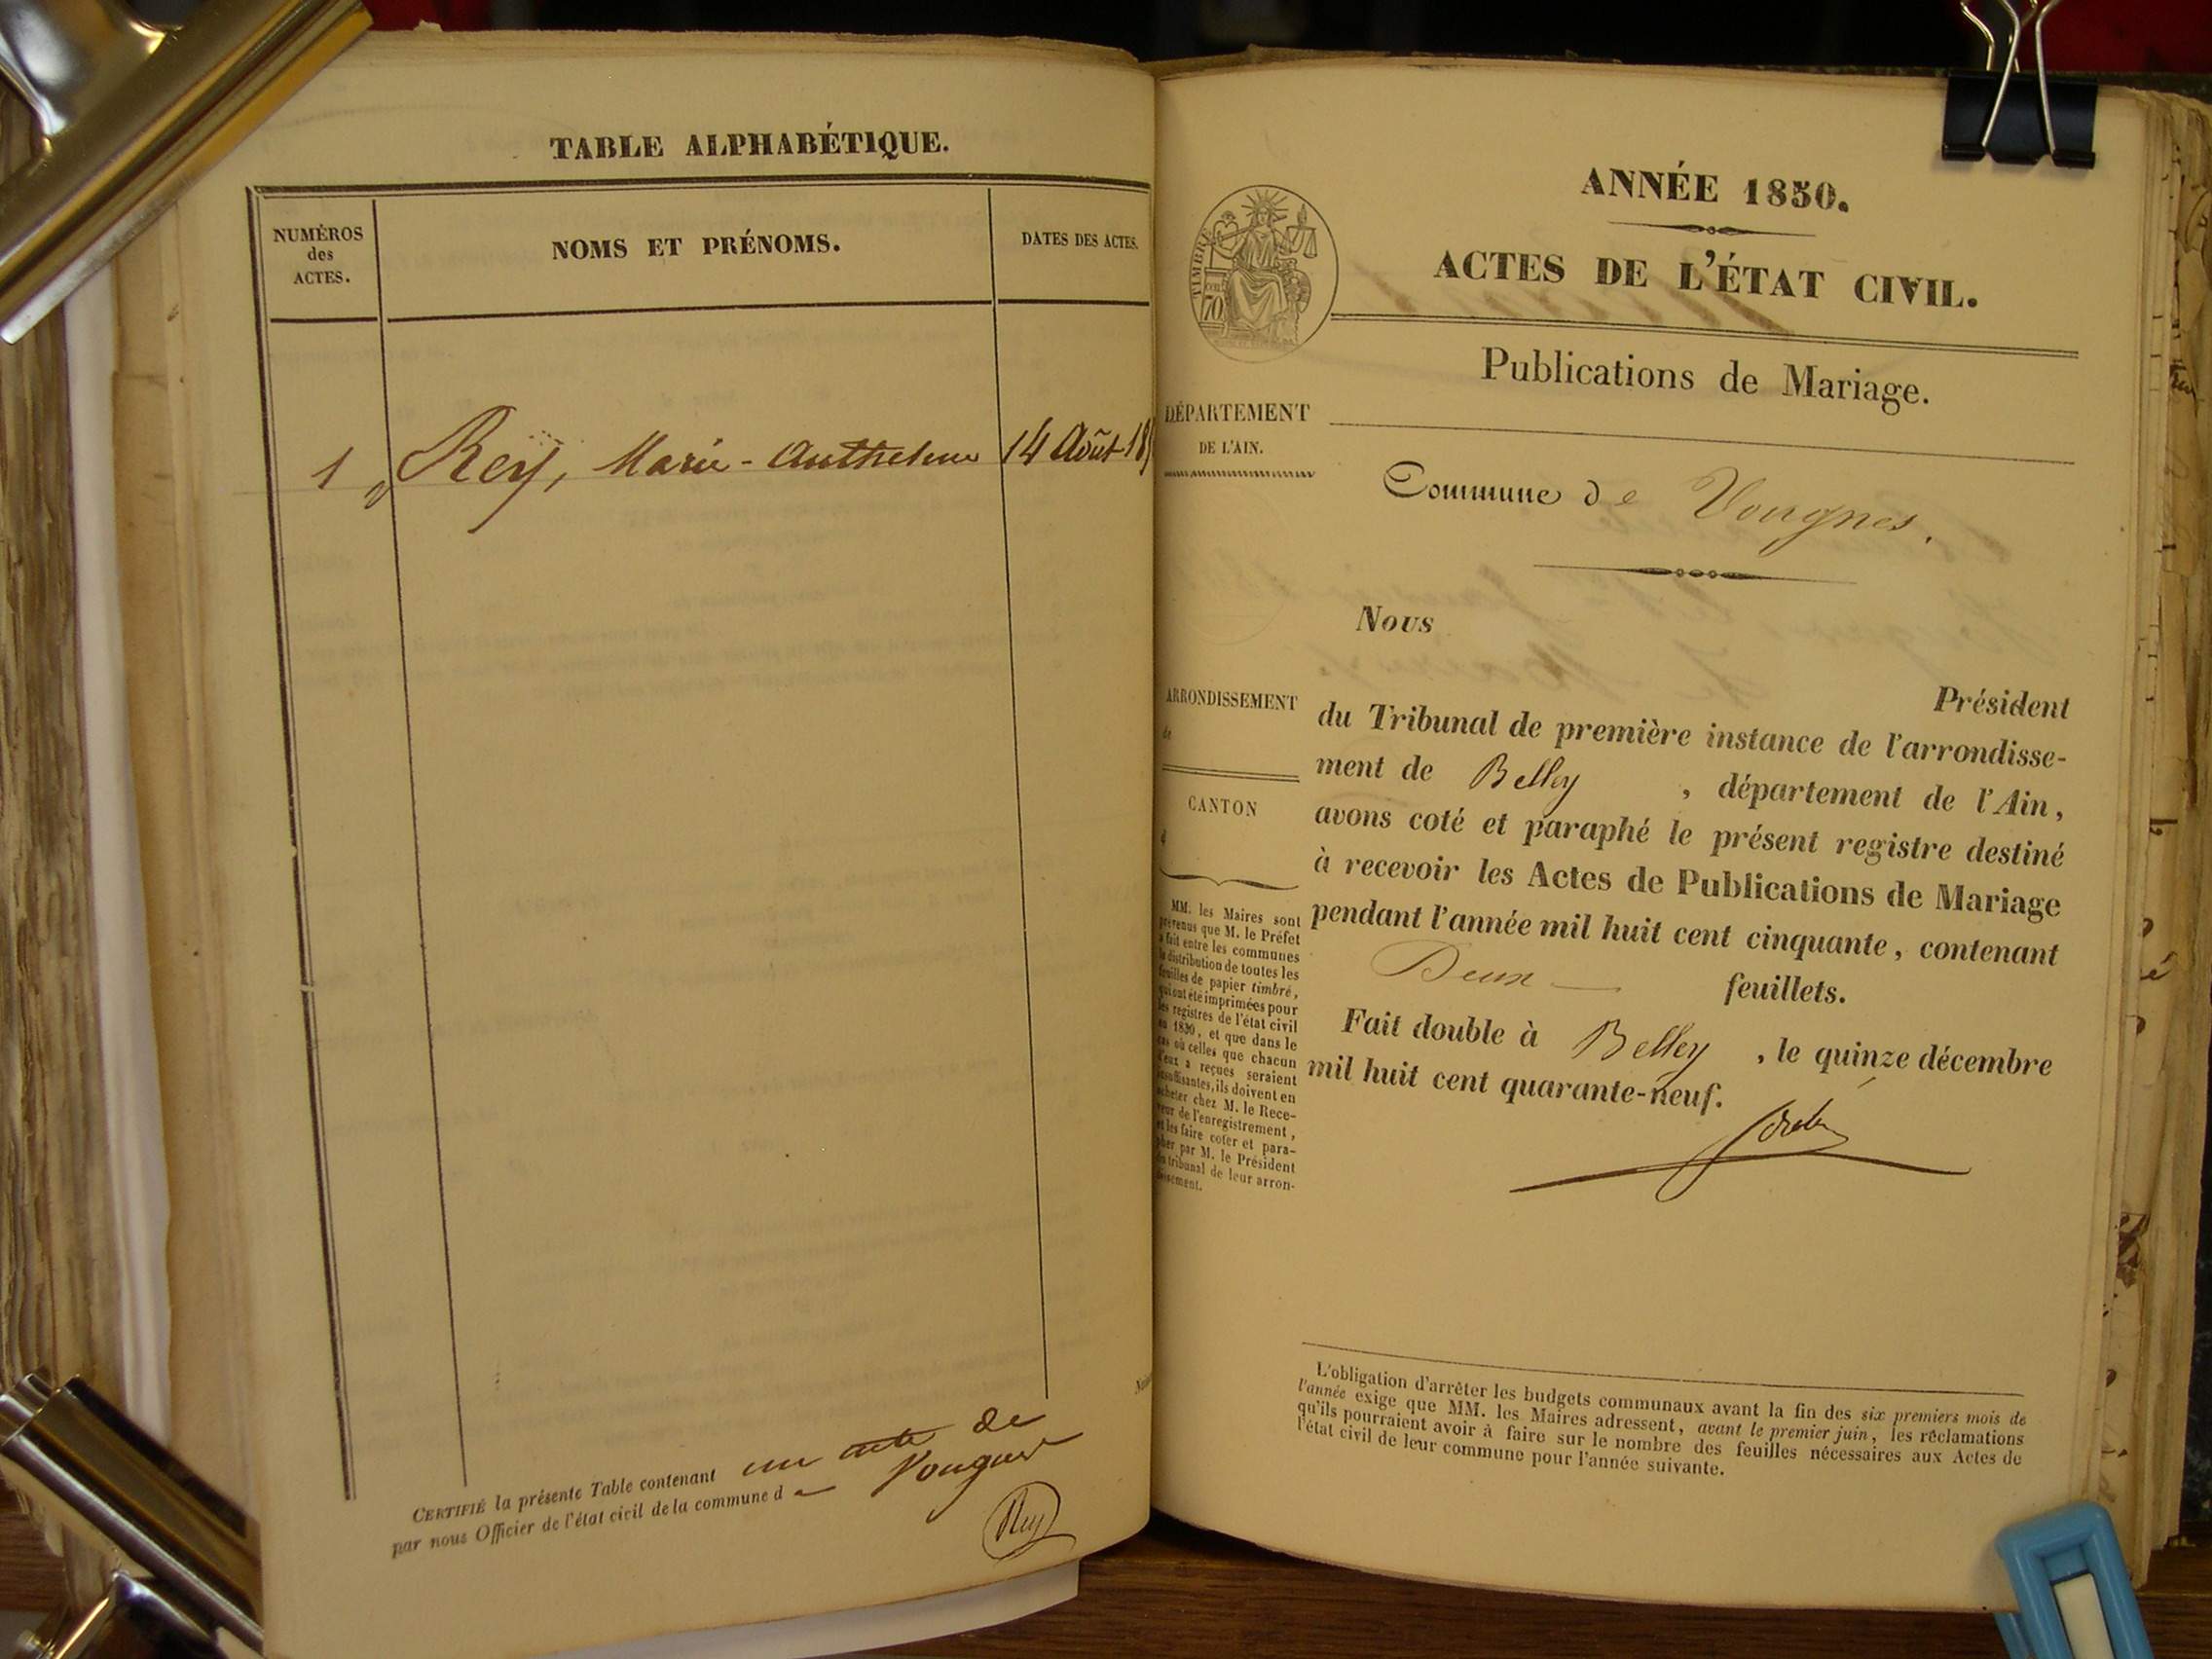 TABLE ALPHABÉTIQUE.
NUMÉROS
des
ACTES.
NOMS ET PRÉNOMS.
DATES DES ACTES.
1 Rey, Marie-Anthelme 14 Août 18
CERTIFIÉ la présente Table contenant un acte de
par nous Officier de l'état civil de la commune de Vougnes
Rey
ANNÉE 1850.
ACTES DE L'ÉTAT CIVIL.
TIMBRE
cen.
70
Publications de Mariage.
DÉPARTEMENT
DE L'AIN.
Commune de Vougnes.
Nous
Président
ARRONDISSEMENT
de
du Tribunal de première instance de l'arrondisse-
ment de Belley , département de l'Ain,
CANTON
d
avons coté et paraphé le présent registre destiné
à recevoir les Actes de Publications de Mariage
pendant l'année mil huit cent cinquante, contenant
Deux feuillets.
Fait double à Belley , le quinze décembre
mil huit cent quarante-neuf.
MM. les Maires sont
prévenus que M. le Préfet
a fait entre les communes
la distribution de toutes les
feuilles de papier timbré,
qui ont été imprimées pour
les registres de l'état civil
en 1850, et que dans le
cas où celles que chacun
d'eux a reçues seraient
insuffisantes, ils doivent en
acheter chez M. le Rece-
veur de l'enregistrement,
et les faire coter et para-
pher par M. le Président
du tribunal de leur arron-
dissement.
L'obligation d'arrêter les budgets communaux avant la fin des six premiers mois de
l'année exige que MM. les Maires adressent, avant le premier juin, les réclamations
qu'ils pourraient avoir à faire sur le nombre des feuilles nécessaires aux Actes de
l'état civil de leur commune pour l'année suivante.